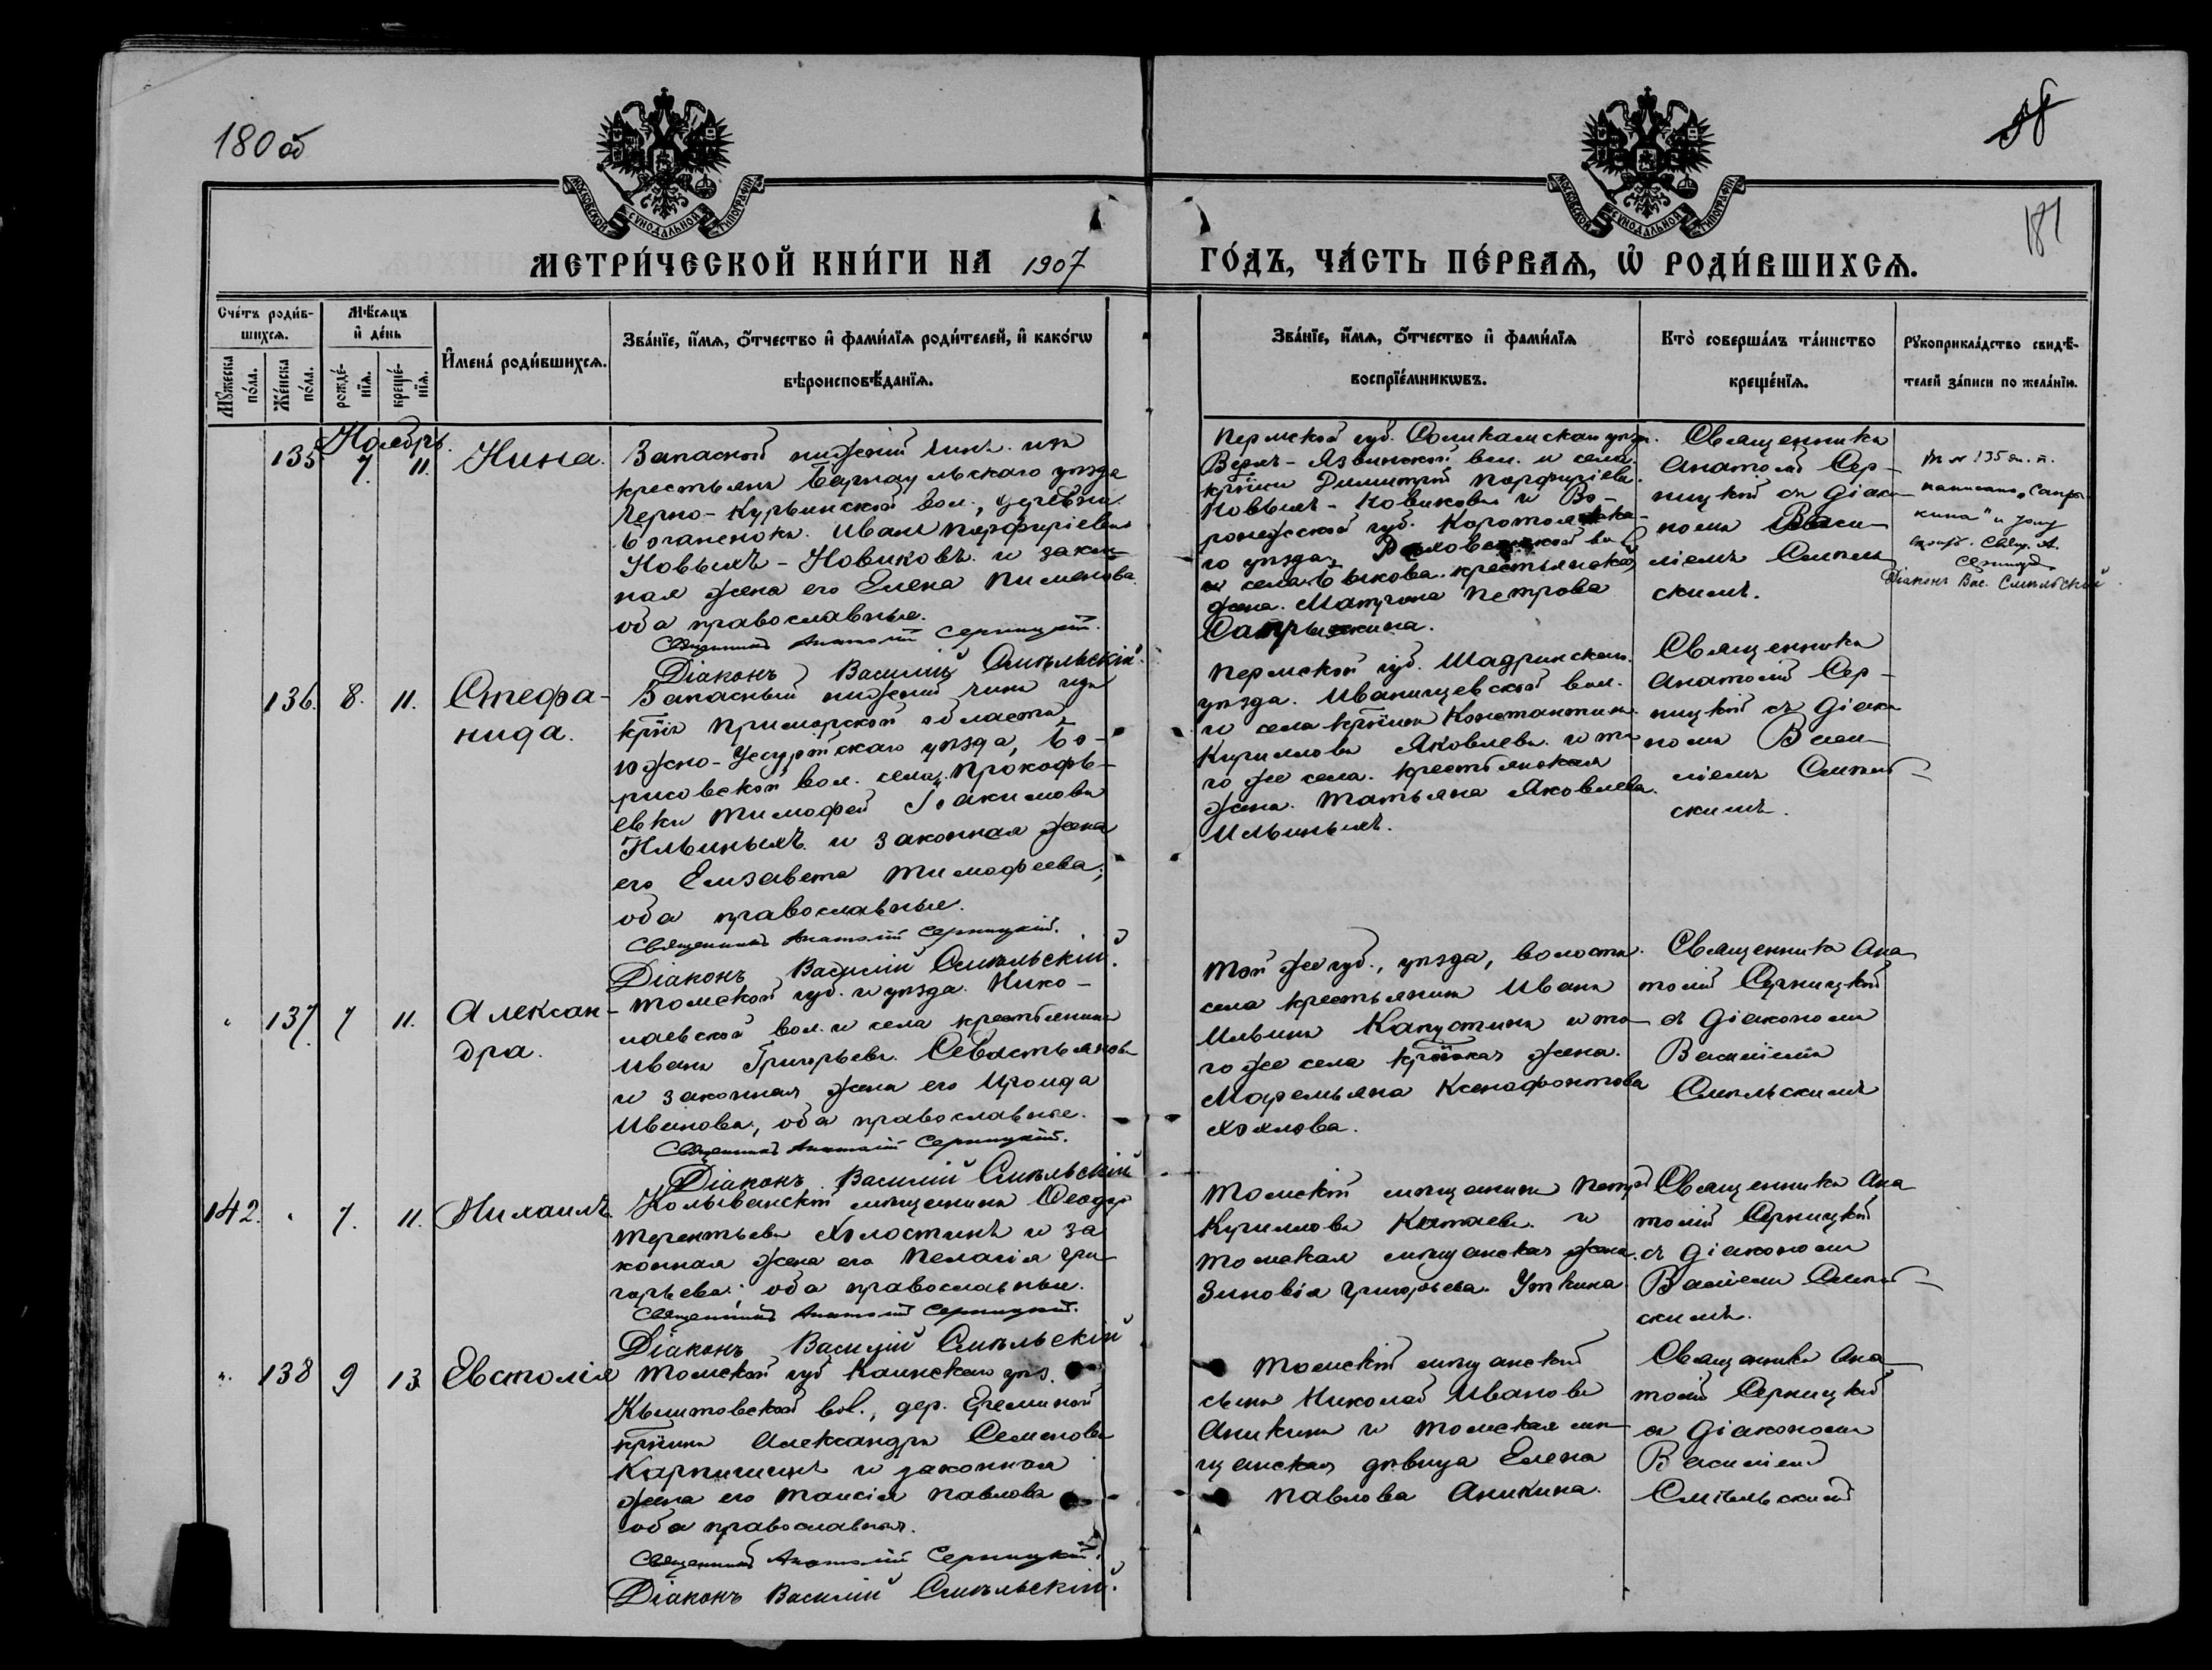 180 об
181
МОСКОВСКОЙ СѴНОДАЛЬНОЙ ТИПОГРАФІИ
МОСКОВСКОЙ СѴНОДАЛЬНОЙ ТИПОГРАФІИ
МЕТРИ́ЧЕСКОЙ КНИ́ГИ НА 1907 ГО́ДЪ, ЧА́СТЬ ПЕ́РВАѦ, Ѡ҆ РОДИ́ВШИХСѦ.
Сче́тъ роди́вшихсѧ.
Мꙋ́жеска по́ла.
Же́нска по́ла.
Мѣ́сѧцъ и҆ де́нь
рожде́нїѧ.
креще́нїѧ.
И҆мена̀ роди́вшихсѧ.
Зва́нїе, и҆́мѧ, ѻ҆́тчество и҆ фами́лїѧ роди́телей, и҆ како́гѡ
вѣроисповѣ́данїѧ.
Зва́нїе, и҆́мѧ, ѻ҆́тчество и҆ фами́лїѧ
воспрїе́мникѡвъ.
Кто̀ соверша́лъ та́инство
креще́нїѧ.
Рꙋкоприкла́дство свидѣ́-
телей за́писи по жела́нїю.
Ноябрь.
135 7. 11. Нина.
Запасной нижній чинъ изъ
крестьянъ Барнаульскаго уѣзда
Черно-Курьинской вол., деревни
Иванъ Парфиріевъ
Новыхъ-Новиковъ и закон-
ная жена его Елена Пименова
оба православные.
Священникъ Анатолій Серницкій.
Діаконъ Василій Смѣльскій.
Пермской губ. Соликамскаго уѣзд.
Верхъ-Язвинской вол. и села
кр̃нинъ Димитрій Парфиріевъ
Новыхъ-Новиковъ и Во-
ронежской губ. Коротоякска-
го уѣзда,
и села Быкова крестьянская
жена Матрона Петрова
Священникъ
Анатолій Сер-
ницкій съ діако-
номъ Васи-
ліемъ Смѣль
скимъ.
Въ № 135 ж. п.
написано „Сапры-
кина" и
Свящ. А.
Серницкій
Діаконъ Вас. Смѣльскій
136. 8. 11. Стефа-
нида.
Запасный нижній чинъ изъ
кр̃нъ Приморской области,
Южно-Уссурійскаго уѣзда, Бо-
рисовской вол. села Прокофь-
евки Тимофей Іоакимовъ
Ильиныхъ и законная жена
его Елизавета Тимофеева;
оба православные.
Священникъ Анатолій Серницкій.
Діаконъ Василій Смѣльскій.
Пермской губ. Шадринскаго
уѣзда Иванищевской вол.
и села кр̃нинъ Константинъ
Кирилловъ Яковлевъ и то-
го же села крестьянская
жена Татьяна Яковлева
Ильиныхъ.
Священникъ
Анатолій Сер-
ницкій съ діако
номъ Васи-
ліемъ Смѣль-
скимъ.
137 7 11. Алексан-
дра.
Томской губ. и уѣзда Нико-
лаевской вол. и села крестьянинъ
Иванъ Григорьевъ Севастьяновъ
и законная жена его Ироида
Иванова, оба православные.
Священникъ Анатолій Серницкій.
Діаконъ Василій Смѣльскій
Той же губ., уѣзда, волости
села крестьянинъ Иванъ
Ильинъ Капустинъ и то-
го же села кр̃нская жена
Маремьяна Ксенофонтова
Хохлова.
Священникъ Ана
толій Серницкій
съ діакономъ
Василіемъ
Смѣльскимъ
142. 7. 11. Михаилъ.
Колыванскій мѣщанинъ Ѳеодоръ
Терентьевъ Холостинъ и за
конная жена его Пелагія Гри
горьева; оба православные.
Священникъ Анатолій Серницкій.
Діаконъ Василій Смѣльскій
Томскій мѣщанинъ Петръ
Кирилловъ Китаевъ и
томская мѣщанская жена
Зиновія Григорьева Уткина
Священникъ Ана
толій Серницкій
съ діакономъ
Василіемъ Смѣль-
скимъ.
138 9 13 Евстолія
Томской губ Каинскаго уѣз.
Кыштовской вол., дер. Ереминой
кр̃нинъ Александръ Семеновъ
и законная
жена его Таисія Павлова
оба православные.
Священникъ Анатолій Серницкій.
Діаконъ Василій Смѣльскій.
Томскій мѣщанскій
сынъ Николай Ивановъ
Аникинъ и томская мѣ-
щанская дѣвица Елена
Павлова Аникина.
Священникъ Ана
толій Серницкій
съ діакономъ
Василіемъ
Смѣльскимъ